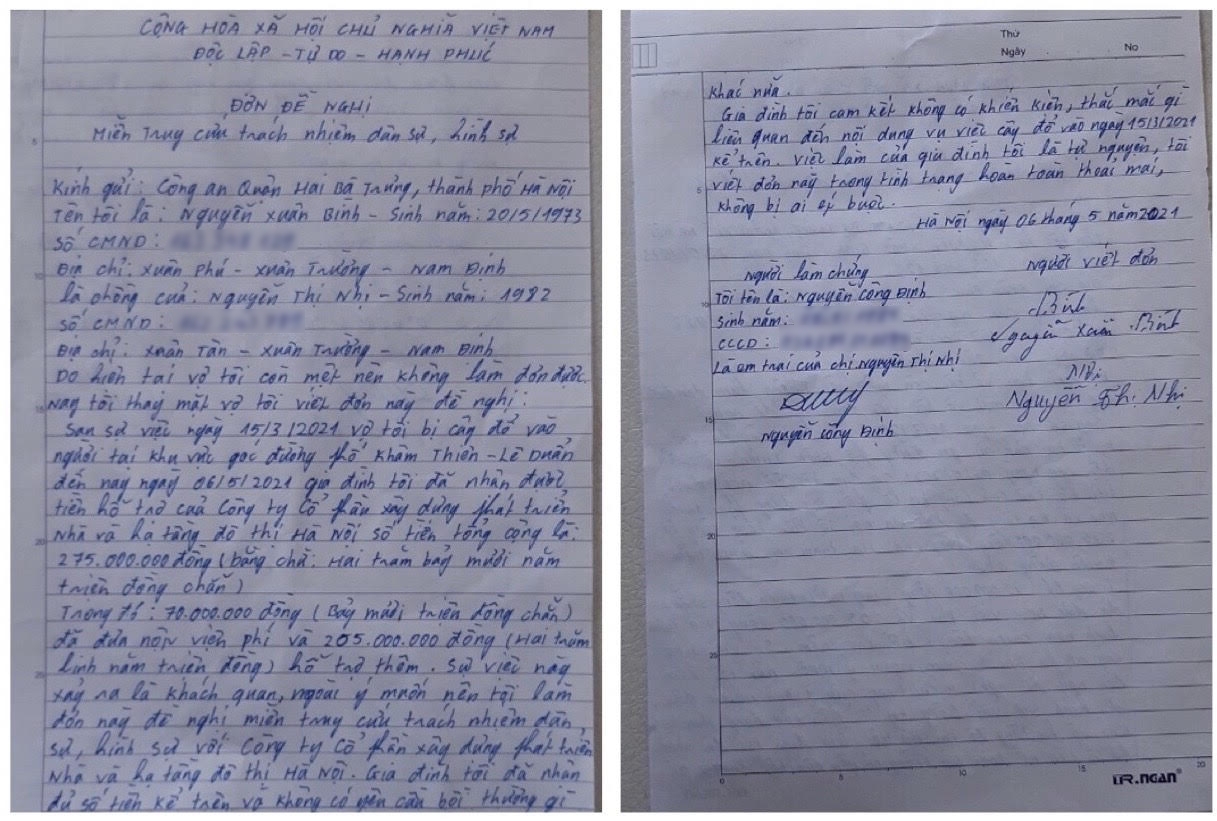 CỘNG HÒA XÃ HỘI CHỦ NGHĨA VIỆT NAM
ĐỘC LẬP - TỰ DO - HẠNH PHÚC
ĐƠN ĐỀ NGHỊ
Miễn Truy cứu trách nhiệm dân sự, hình sự
Kính gửi: Công an Quận Hai Bà Trưng, thành phố Hà Nội
Tên tôi là: Nguyễn Xuân Bình - Sinh năm: 20/5/1973
Số CMND:
Địa chỉ: Xuân Phú - Xuân Trường - Nam Định
là chồng của: Nguyễn Thị Nhị - Sinh năm: 1982
Số CMND:
Địa chỉ: Xuân Tân - Xuân Trường - Nam Định
Do hiện tại vợ tôi còn mệt nên không làm đơn được
nay tôi thay mặt vợ tôi viết đơn này đề nghị:
Sau sự việc ngày 15/3/2021 vợ tôi bị cây đổ vào
người tại khu vực góc đường phố Khâm Thiên - Lê Duẩn
đến nay ngày 06/5/2021 gia đình tôi đã nhận được
tiền hỗ trợ của Công ty Cổ phần xây dựng phát triển
Nhà và hạ tầng đô thị Hà Nội số tiền tổng cộng là:
275.000.000 đồng (bằng chữ: Hai trăm bảy mươi năm
triệu đồng chẵn)
Trong đó: 70.000.000 đồng (Bảy mươi triệu đồng chẵn)
đã đưa nộp viện phí và 205.000.000 đồng (Hai trăm
linh năm triệu đồng) hỗ trợ thêm. Sự việc này
xảy ra là khách quan, ngoài ý muốn nên tôi làm
đơn này đề nghị miễn truy cứu trách nhiệm dân
sự, hình sự với Công ty Cổ phần xây dựng phát triển
Nhà và hạ tầng đô thị Hà Nội. Gia đình tôi đã nhận
đủ số tiền kể trên và không có yêu cầu bồi thường gì
Thứ
Ngày No
khác nữa.
Gia đình tôi cam kết không có khiếu kiện, thắc mắc gì
liên quan đến nội dung vụ việc cây đổ vào ngày 15/3/2021
kể trên. Việc làm của gia đình tôi là tự nguyện, tôi
viết đơn này trong tình trạng hoàn toàn thoải mái,
không bị ai ép buộc.
Hà Nội ngày 06 tháng 5 năm 2021
Người làm chứng
Người viết đơn
Tôi tên là: Nguyễn Công Định
Sinh năm:
CCCD:
Là em trai của chị Nguyễn Thị Nhị
Nguyễn Công Định
Bình
Nguyễn Xuân Bình
Nhị
Nguyễn Thị Nhị
5
10
15
20
25
5
10
15
20
25
0
5
10
15
20
TR.NGAN®